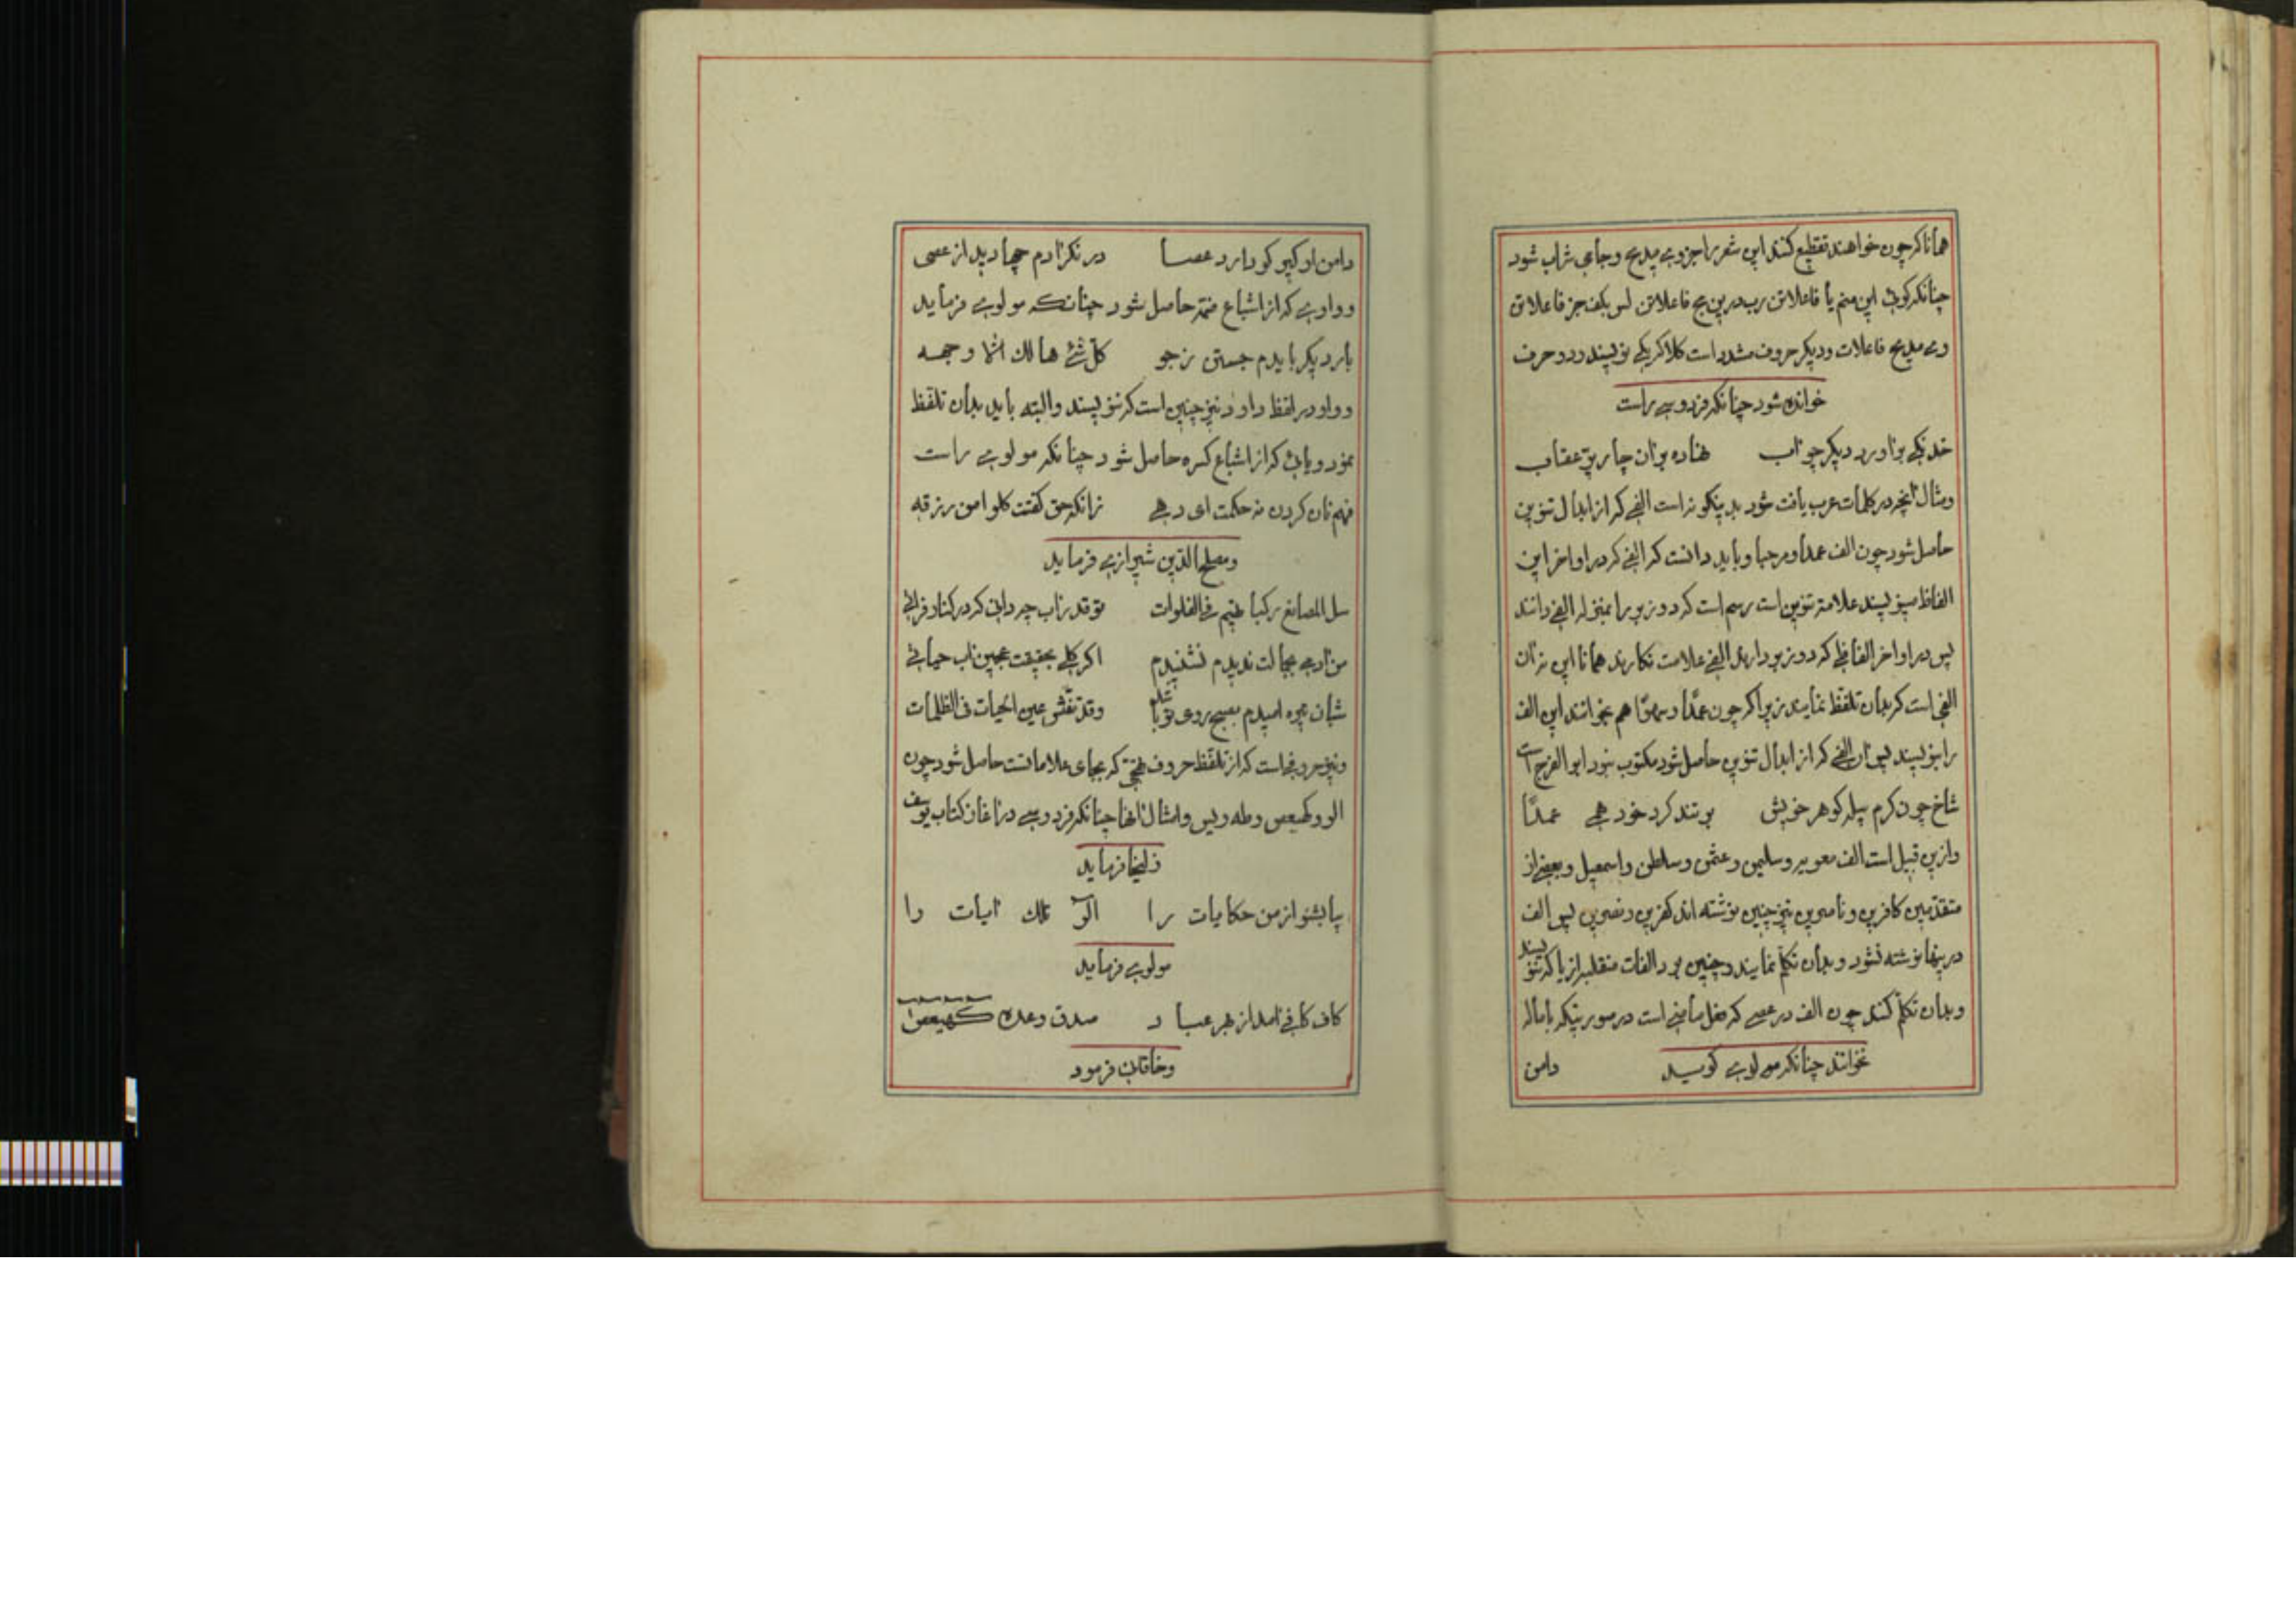 همانا کر چون خواهند تقطیع کنند این شعر را جزو می بدیع و جامی شراب شود
چنانکه کوئی این منم یا فاعلاتن رب درین فاعلاتن بس بکف جز فاعلاتن
می بدیع فاعلات و دیکر حروف مشدد است کلا کر یکی نویسند و دو حرف
خوانده شود چنانکه فردوسی راست
خدنکی براورد دیکر چو اب نهاده بران چار پر عقاب
ومثال انچه در کلمات عرب یافت شود بدینکونه است الفی که از ابدال تنوین
حاصل شود چون الف عمدا و مرحبا و باید دانست کر الفی کر در اواخر این
الفاظ مینویسند علامة تنوین است رسم است کر دو زبر را بمنزله الفی دانند
پس در اواخر الفاظی که دو زبر دارند الفی علامت نکارند همانا این نه ان
الفی است کر بدان تلفظ نمایند زیرا کر چون عمدًا و سهوًا هم بخوانند این الف
را بنویسند پس ان الفی کر از ابدال تنوین حاصل شود مکتوب نبود ابو الفرج است
شاخ چون کرم پیله کوهر خویش بر تند کرد خود همی عمدًا
وازین قبیل است الف معویه و سلیمن و عثمن و سلطن و اسمعیل و بعضی از
متقدمین کافرین و ناصرین نیز چنین نوشته اند کفرین و نصرین پس الف
درینها نوشته نشود و بدان تکلم نمایند و چنین بود الفات منقلبه از یا کر نویسند
وبدان تکلم کنند چون الف در عصی که فعل ماضی است در صورتیکه باماله
نخوانند چنانکه مولوی کوید دامن
دامن او کیر کو دارد عصا در نکر ادم چها دید از عصی
و واوی که از اشباع ضمة حاصل شود چنانکه مولوی فرماید
بار دیکر بایدم جستن ز جو کل شئ هالک الا وجهه
و واو در لفظ داود نیز چنین است کر ننویسند و البته باید بدان تلفظ
نمود و یائی که از اشباع کسره حاصل شود چنانکه مولوی راست
فهم نان کردن نه حکمت ای رهی زانکه حق کفتت کلوا من رزقه
ومصلح الدین شیرازی فرماید
سل المصانع رکبا تهیم فی الفلوات تو قدر اب چه دانی کر در کنار فراتی
من ادمی بجمالت ندیدم نشنیدم اکر کلی بحقیقت عجین اب حیاتی
شبان تیره امیدم بصبح روی تو باشد وقد تفتش عین الحیات فی الظلمات
ونیز حروفی است که از تلفظ حروف تهجی که بجای علامات است حاصل شود چون
الر و کهیعص و طه و یس و امثال انها چنانکه فردوسی در اغاز کتاب یوسف
زلیخا فرماید
بیا بشنو از من حکایات را الر تلک ایات را
مولوی فرماید
کاف کافی امد از بهر عباد صدق وعده کهیعص
وخاقانی فرمود